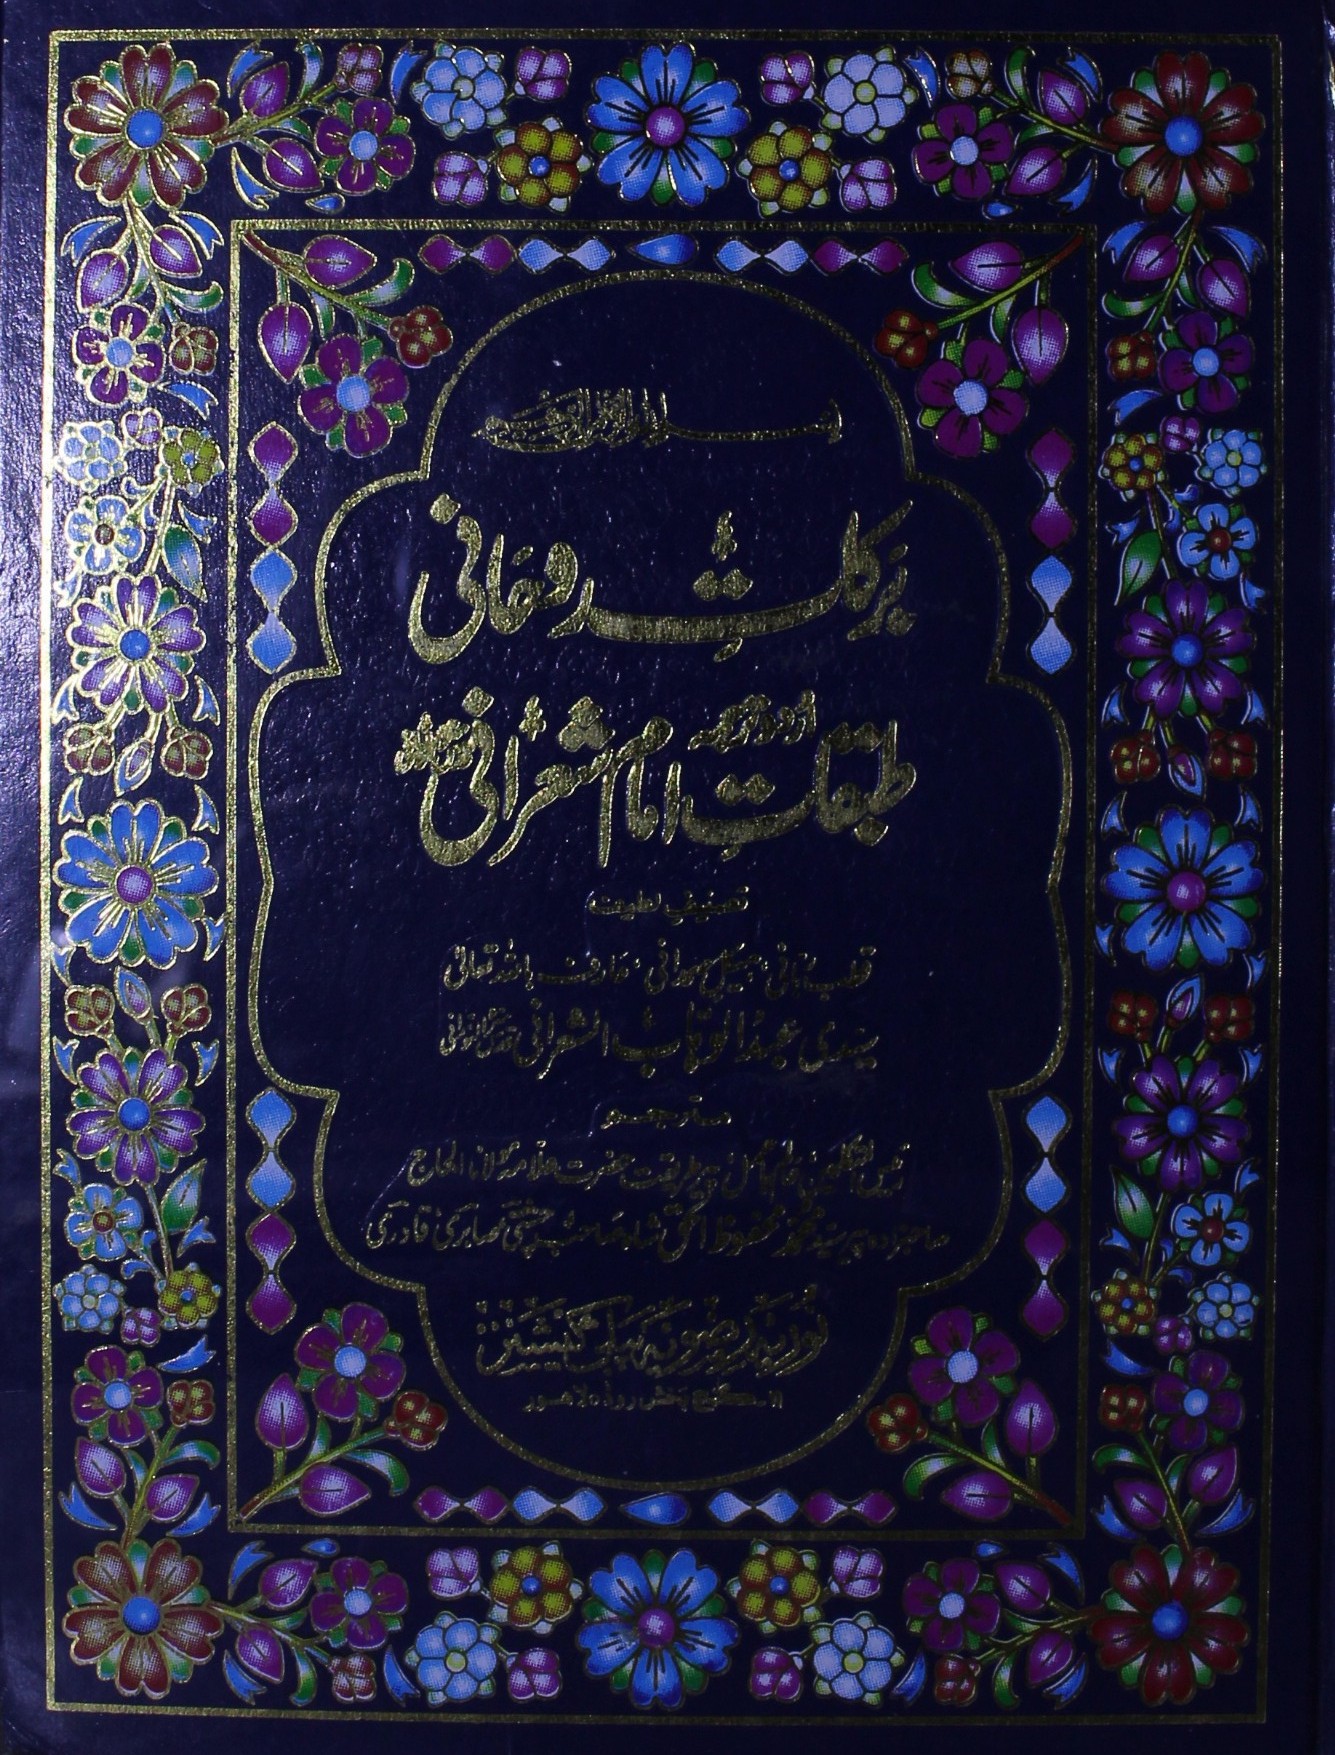 بسم اللہ الرحمن الرحیم
برکات روحانی
اردو ترجمہ
طبقات امام شعرانی
تصنیف لطیف
قطب ربانی، ہیکل صمدانی، عارف باللہ تعالیٰ
سیدی عبدالوہاب الشعرانی
مترجم
زین المتکلمین عالم باعمل پیر طریقت حضرت علامہ مولانا الحاج
صاحبزادہ پیر سید محمد محفوظ الحق شاہ صاحب چشتی صابری قادری
نوریہ رضویہ پبلی کیشنز
۱۱۔ گنج بخش روڈ، لاہور